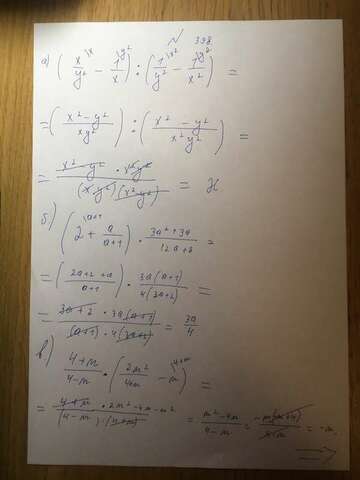 № 398
а) (x/y² \x − 1/x \y²) : (1/y² \x² − 1/x² \y²) =
= (x² − y² / xy²) : (x² − y² / x²y²) =
= x² − y² · x²y² / (xy²)(x²y²) = x
б) (2 \a+1 + a/a+1) · 3a² + 3a / 12a + 8 =
= (2a+2+a / a+1) · 3a(a+1) / 4(3a+2) =
= 3a+2 · 3a(a+1) / (a+1) · 4(3a+2) = 3a/4
в) 4+m / 4−m · (2m² / 4+m − m \4+m) =
= 4+m · 2m² − 4m − m² / (4−m) · (4+m) = m² − 4m / 4−m = −m(m+4) / 4−m = −m.